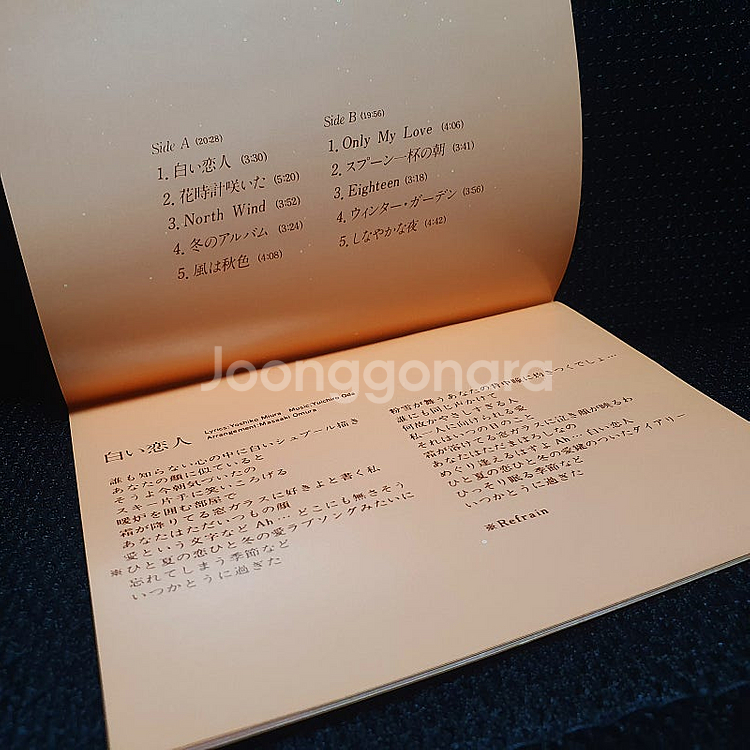 Side A (20:28)
1. 白い恋人 (3:30)
2. 花時計咲いた (5:20)
3. North Wind (3:52)
4. 冬のアルバム (3:24)
5. 風は秋色 (4:08)
Side B (19:56)
1. Only My Love (4:06)
2. スプーン一杯の朝 (3:41)
3. Eighteen (3:18)
4. ウィンター・ガーデン (3:56)
5. しなやかな夜 (4:42)
Joonggonara
白い恋人
Lyrics:Yoshiko Miura Music:Yuichiro Oda
Arrangement:Masaaki Omura
誰も知らない心の中に白いシュプール描き
あなたの顔に似ていると
そうよ今朝気づいたの
スキー片手に笑いころげる
暖炉を囲む部屋で
霜が降りてる窓ガラスに好きよと書く私
あなたはただいつもの顔
愛という文字など Ah… どこにも無さそう
※ひと夏の恋ひと冬の愛ラブソングみたいに
忘れてしまう季節など
いつかとうに過ぎた
粉雪が舞うあなたの背中峰に抱きつくでしょ…
誰にも同じ声かけて
何度かやさしすぎる人
私一人に向けられる愛
それはいつの日のこと
霜が溶けても窓ガラスに泣き顔が映るわ
あなたはただまぼろしなの
めぐり逢えるはずよ Ah… 白い恋人
ひと夏の恋ひと冬の愛鍵のついたダイアリー
ひっそり眠る季節など
いつかとうに過ぎた
※Refrain